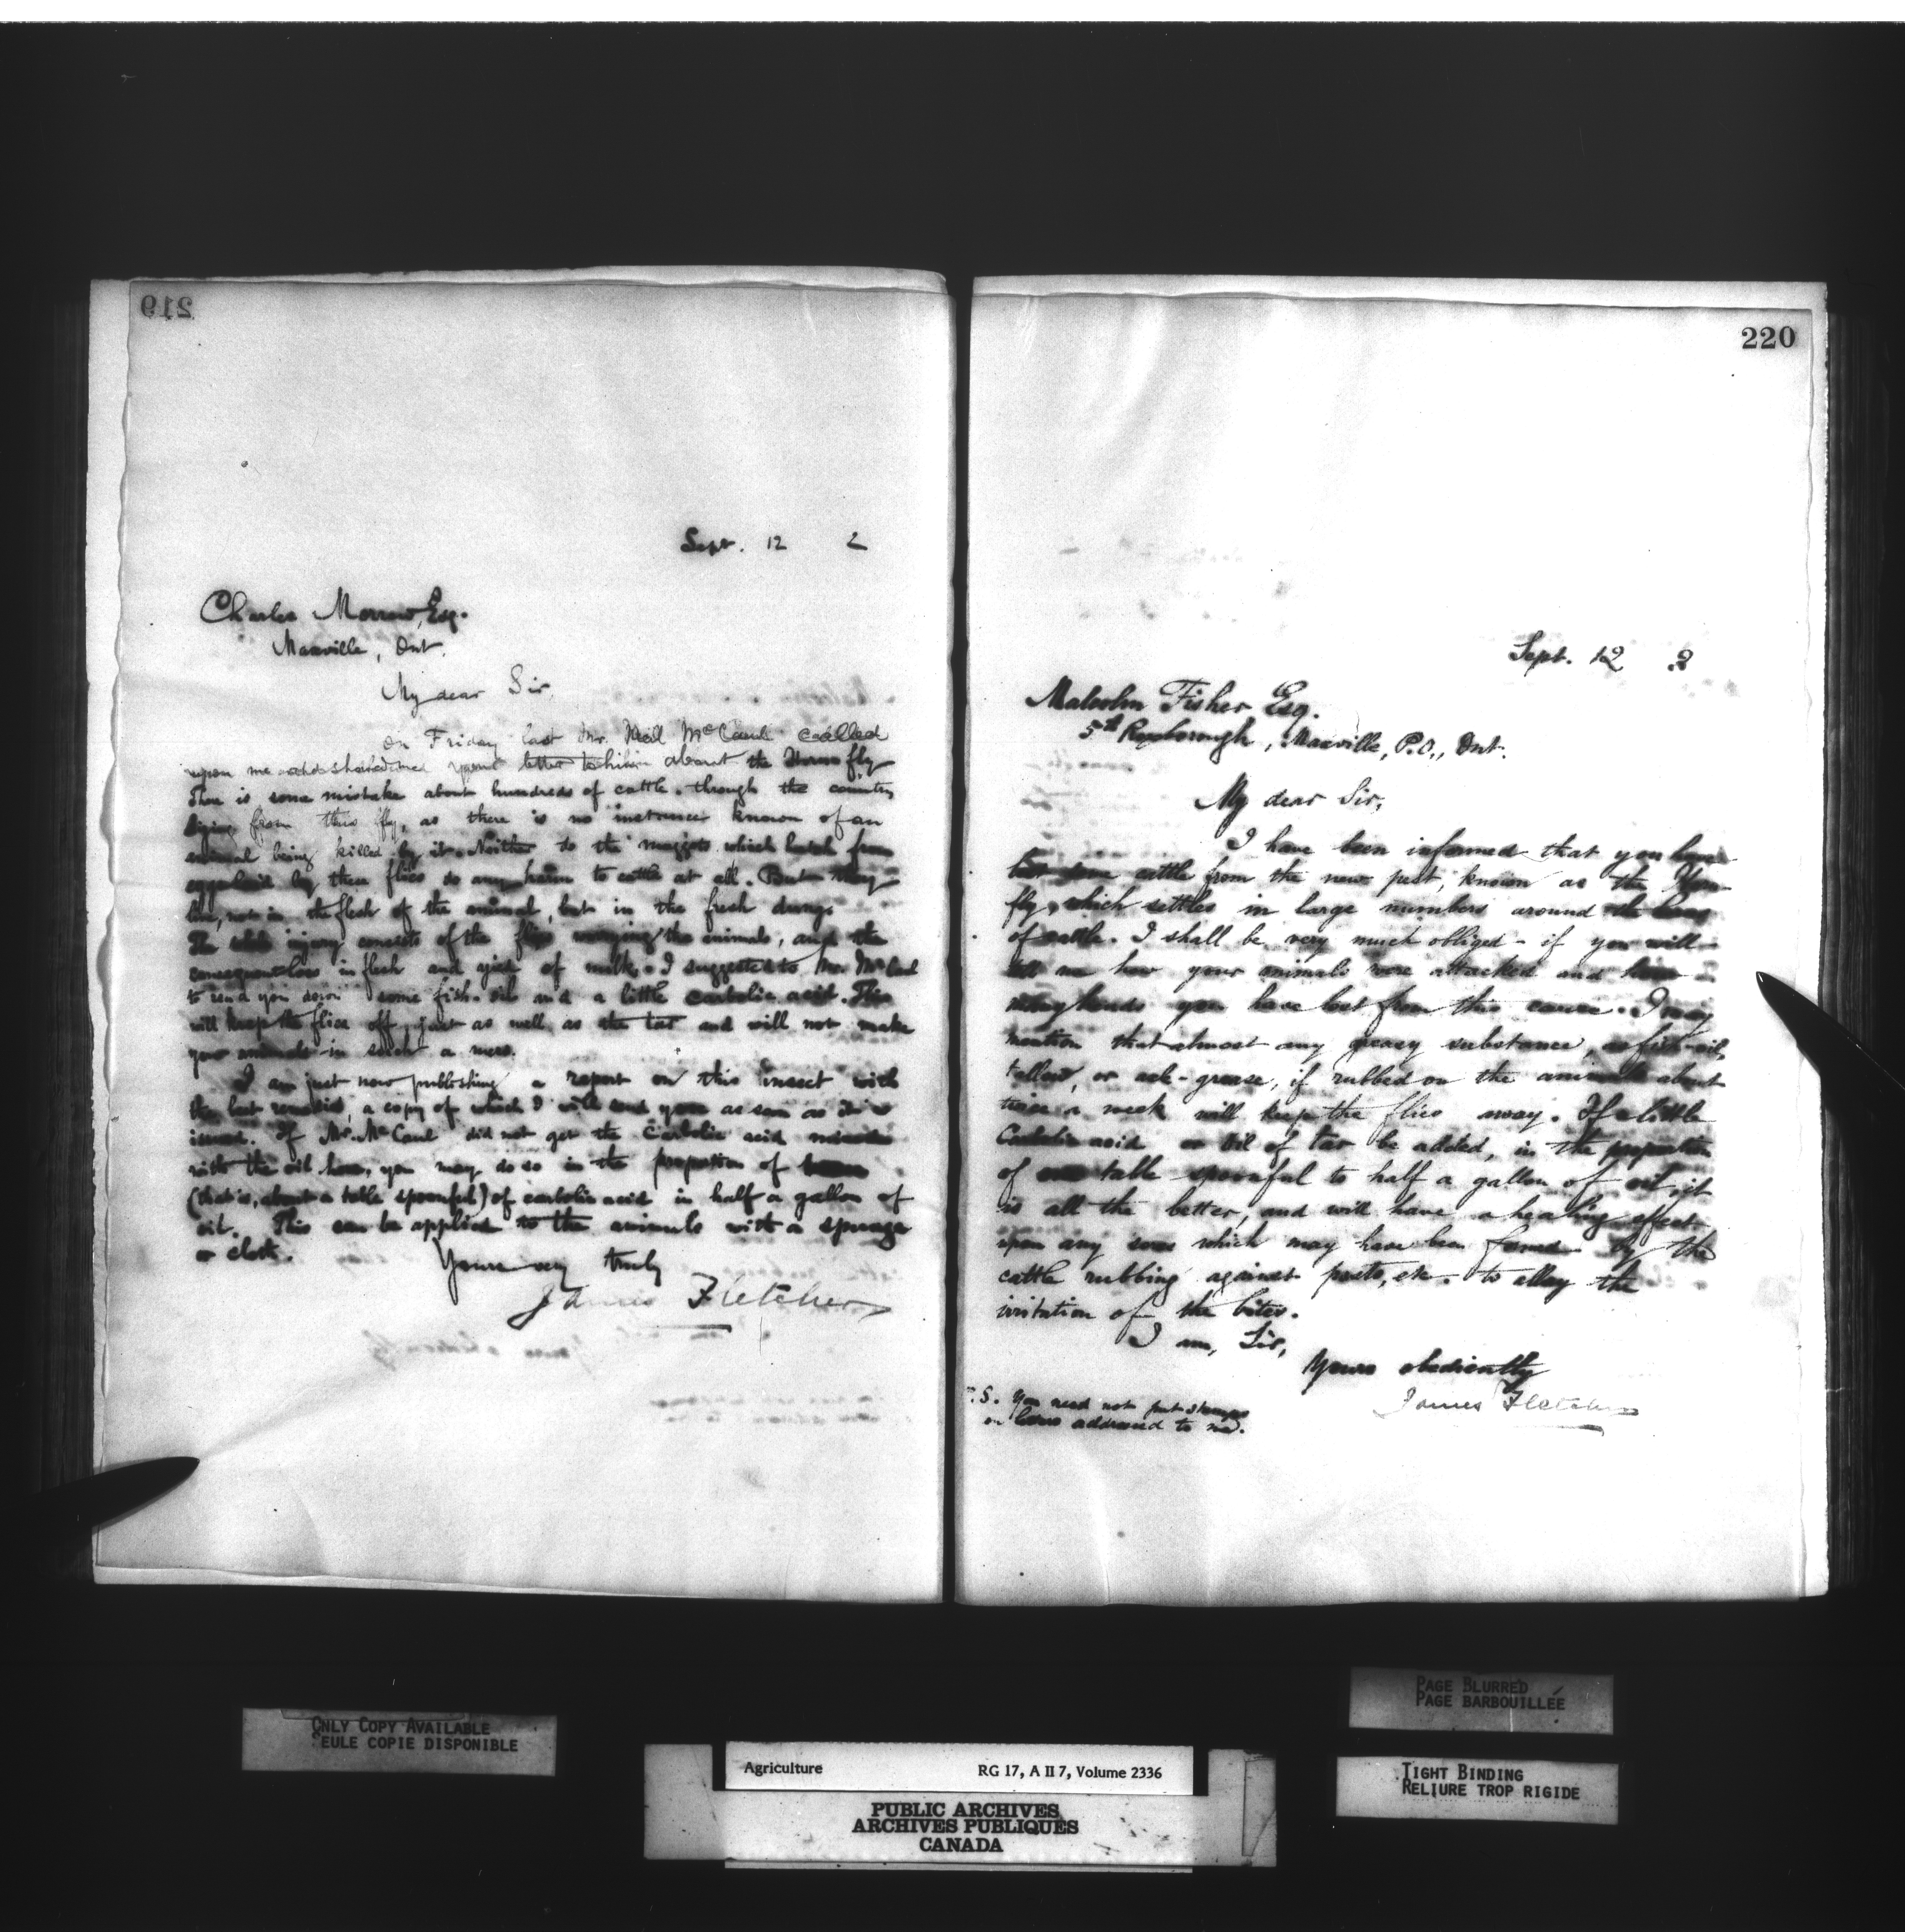 219
Sept. 12 2
Charles Morrow, Esq.
Maxville, Ont.
My dear Sir,
On Friday last Mr. Neil McCaul called
upon me and showed me your letter to him about the Horn fly
There is some mistake about hundreds of cattle through the country
dying from this fly, as there is no instance known of an
animal being killed by it. Neither do the maggots which hatch from
eggs laid by these flies do any harm to cattle at all. But they
live, not in the flesh of the animal, but in the fresh dung.
The whole injury consists of the flies worrying the animals, and the
consequent loss in flesh and yield of milk. I suggested to Mr. McCaul
to send you down some fish-oil and a little carbolic acid. This
will keep the flies off just as well as the tar and will not make
your animals in such a mess.
I am just now publishing a report on this insect with
the best remedies, a copy of which I will send you as soon as it is
issued. If Mr. McCaul did not get the carbolic acid mixed
with the oil here, you may do so in the proportion of
(that is, about a table spoonful) of carbolic acid in half a gallon of
oil. This can be applied to the animals with a sponge
or cloth.
Yours very truly
James Fletcher
220
Sept. 12 2
Malcolm Fisher Esq.
5th Roxborough, Maxville, P.O., Ont.
My dear Sir,
I have been informed that you have
lost some cattle from the new pest, known as the Horn
fly, which settles in large numbers around the horns
of cattle. I shall be very much obliged if you will
tell me how your animals were attacked and how
many heads you have lost from this cause. I may
mention that almost any greasy substance, as fish-oil,
tallow, or axle-grease, if rubbed on the animals about
twice a week will keep the flies away. If a little
Carbolic acid or Oil of tar be added, in the proportion
of one table spoonful to half a gallon of oil, it
is all the better, and will have a healing effect
upon any sores which may have been formed by the
cattle rubbing against posts, etc. to allay the
irritation of the bites.
I am, Sir,
Yours obediently
James Fletcher
P.S. You need not put stamps
on addressed to me.
ONLY COPY AVAILABLE
SEULE COPIE DISPONIBLE
PAGE BLURRED
PAGE BARBOUILLÉE
Agriculture RG 17, A II 7, Volume 2336
TIGHT BINDING
RELIURE TROP RIGIDE
PUBLIC ARCHIVES
ARCHIVES PUBLIQUES
CANADA